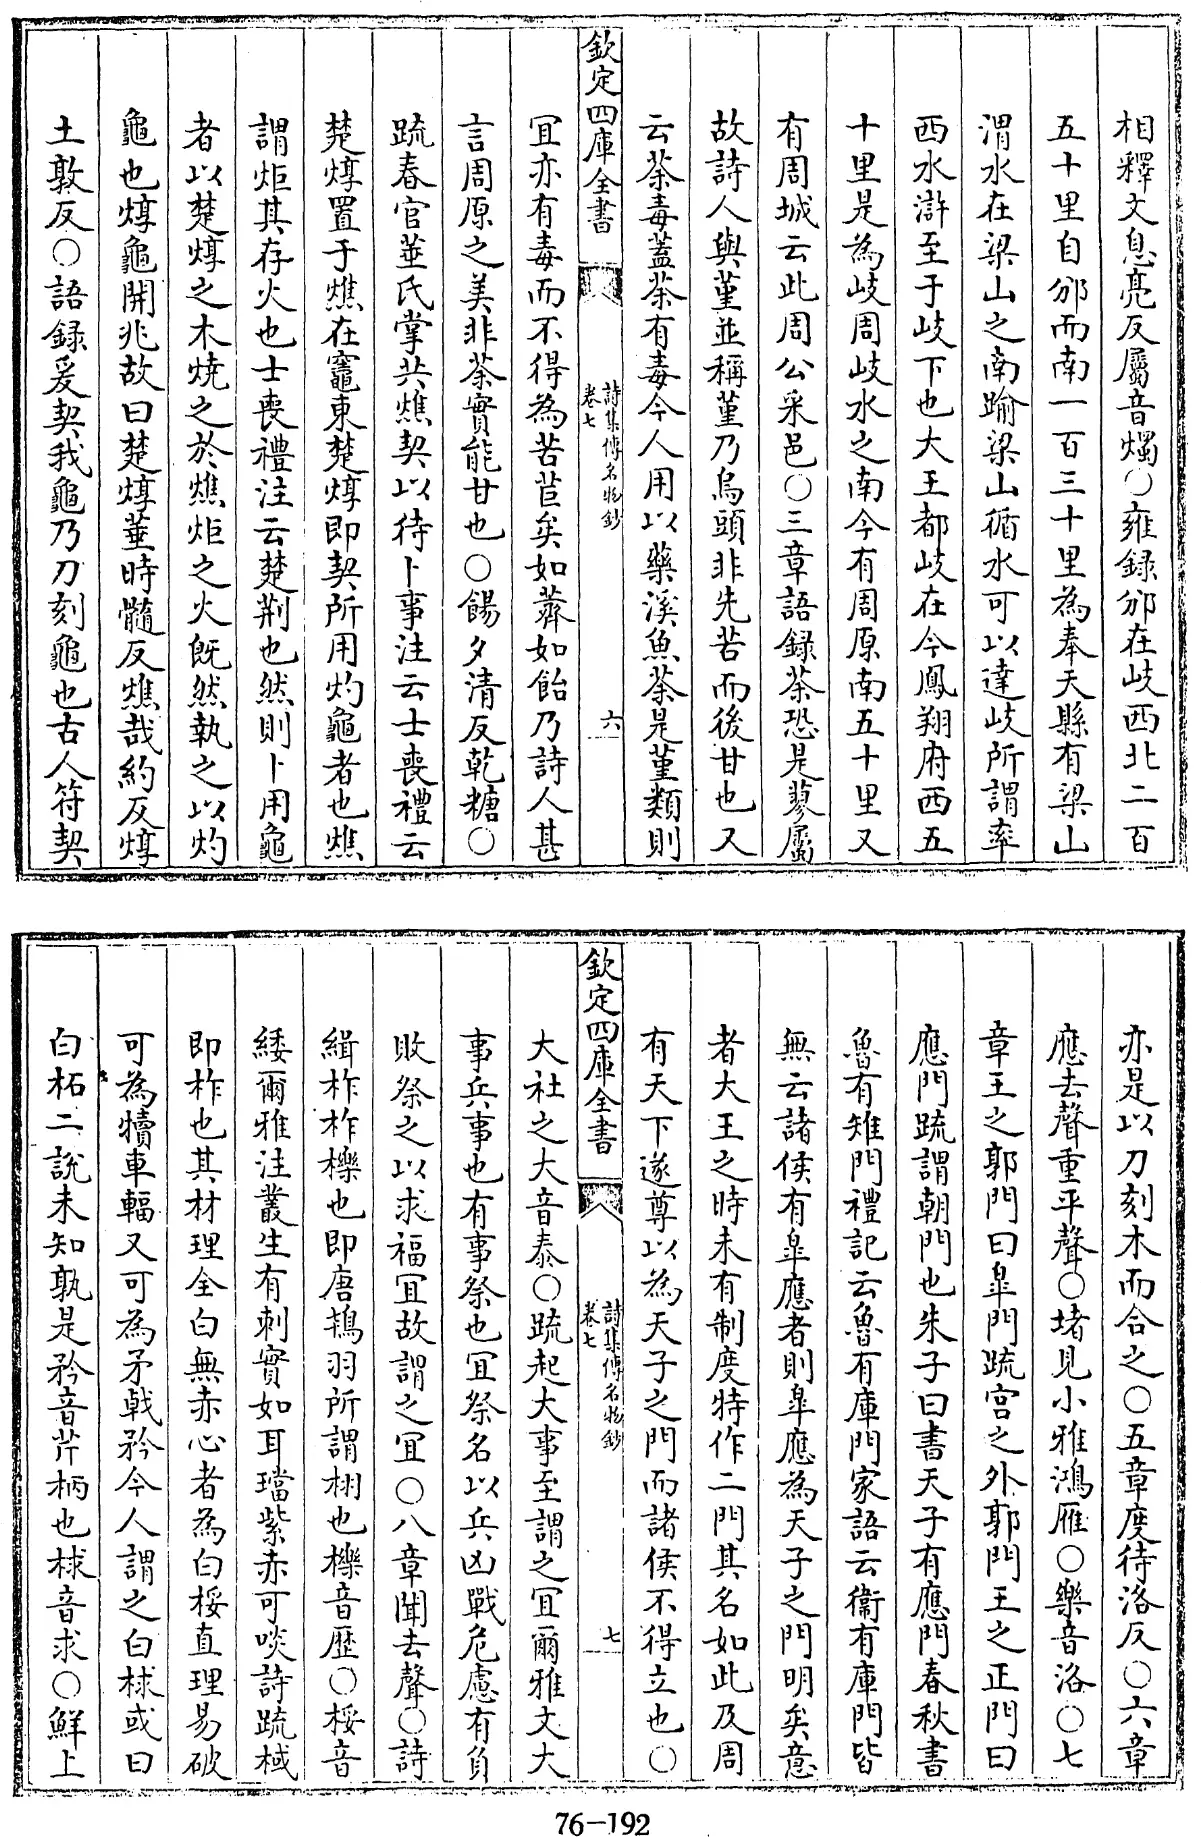 相釋文息亮反屬音燭○雍録邠在岐西北二百
五十里自邠而南一百三十里為奉天縣有梁山
渭水在梁山之南踰梁山循水可以達岐所謂率
西水滸至于岐下也大王都岐在今鳳翔府西五
十里是為岐周岐水之南今有周原南五十里又
有周城云此周公采邑○三章語録荼恐是蓼屬
故詩人與堇並稱堇乃烏頭非先苦而後甘也又
云荼毒蓋荼有毒今人用以藥溪魚荼是堇類則
欽定四庫全書
詩集傳名物鈔
卷七
六
宜亦有毒而不得為苦苣矣如薺如飴乃詩人甚
言周原之美非荼實能甘也○餳夕清反乾糖○
疏春官菙氏掌共燋契以待卜事注云士喪禮云
楚焞置于燋在竈東楚焞即契所用灼龜者也燋
謂炬其存火也士喪禮注云楚荆也然則卜用龜
者以楚焞之木燒之於燋炬之火既然執之以灼
龜也焞龜開兆故曰楚焞菙時髓反燋哉約反焞
土敦反○語録爰契我龜乃刀刻龜也古人符契
亦是以刀刻木而合之○五章度待洛反○六章
應去聲重平聲○堵見小雅鴻雁○樂音洛○七
章王之郭門曰臯門疏宫之外郭門王之正門曰
應門疏謂朝門也朱子曰書天子有應門春秋書
魯有雉門禮記云魯有庫門家語云衞有庫門皆
無云諸侯有臯應者則臯應為天子之門明矣意
者大王之時未有制度特作二門其名如此及周
有天下遂尊以為天子之門而諸侯不得立也○
欽定四庫全書
詩集傳名物鈔
卷七
七
大社之大音泰○疏起大事至謂之宜爾雅文大
事兵事也有事祭也宜祭名以兵凶戰危慮有負
敗祭之以求福宜故謂之宜○八章聞去聲○詩
緝柞柞櫟也即唐鴇羽所謂栩也櫟音歷○桵音
緌爾雅注叢生有刺實如耳璫紫赤可啖詩疏棫
即柞也其材理全白無赤心者為白桵直理易破
可為犢車輻又可為矛戟矜今人謂之白梂或曰
白柘二說未知孰是矜音芹柄也梂音求○鮮上
76-192